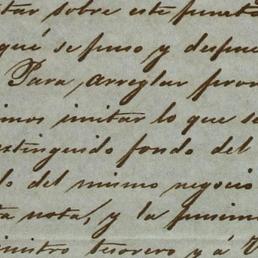 itar sobre este punto
qué se puso y despue
Para arreglar pron
imos imitar lo que se
estinguido fondo del
lo del mismo negocio
ta nota, y la
nistro tesorero y á V